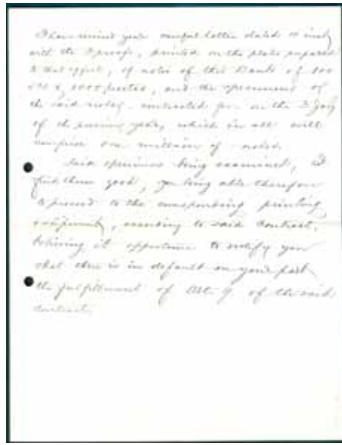 I have received your careful letter dated 10 inst,
with the 3 proofs, printed on the plate prepared
to that effect, of notes of this Bank of 100
500 & 1000 pesetas, and the specimens of
the said notes contracted for on the 3 July
of the present year, which in all will
comprise one million of notes.
Said specimens being examined, I
find them good, you being able therefore
to proceed to the corresponding printing
according to said contract,
believing it opportune to notify you
that there is in default on your part
the fulfillment of Art. 9 of the said
contract.